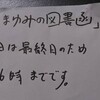 まゆみの図書函」
日は最終日のため
6時までです。